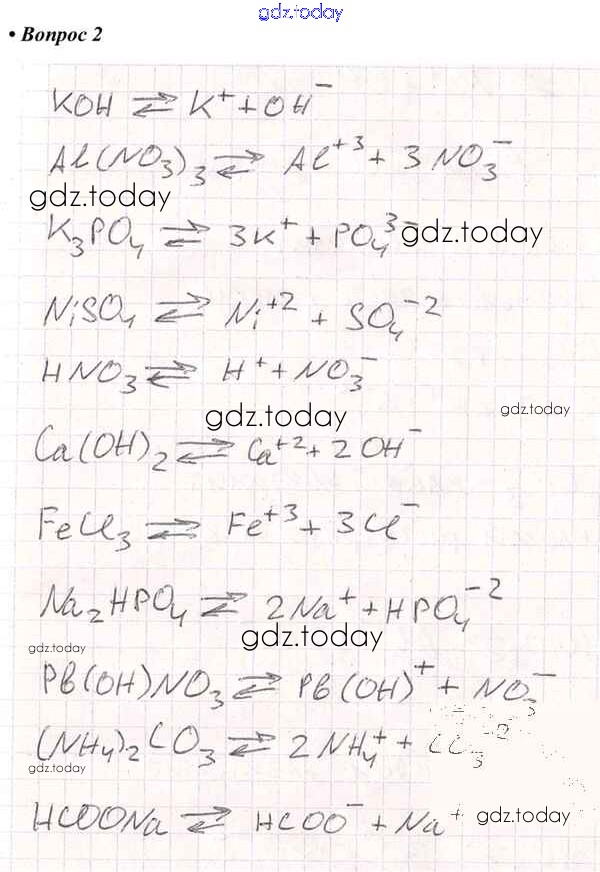 gdz.today
• Вопрос 2
KOH ⇌ K⁺ + OH⁻
Al(NO₃)₃ ⇌ Al⁺³ + 3NO₃⁻
gdz.today
K₃PO₄ ⇌ 3K⁺ + PO₄³⁻ gdz.today
NiSO₄ ⇌ Ni⁺² + SO₄⁻²
HNO₃ ⇌ H⁺ + NO₃⁻
gdz.today gdz.today
Ca(OH)₂ ⇌ Ca⁺² + 2OH⁻
FeCl₃ ⇌ Fe⁺³ + 3Cl⁻
Na₂HPO₄ ⇌ 2Na⁺ + HPO₄⁻²
gdz.today gdz.today
Pb(OH)NO₃ ⇌ Pb(OH)⁺ + NO₃⁻
(NH₄)₂CO₃ ⇌ 2NH₄⁺ + CO₃⁻²
gdz.today
HCOONa ⇌ HCOO⁻ + Na⁺ gdz.today